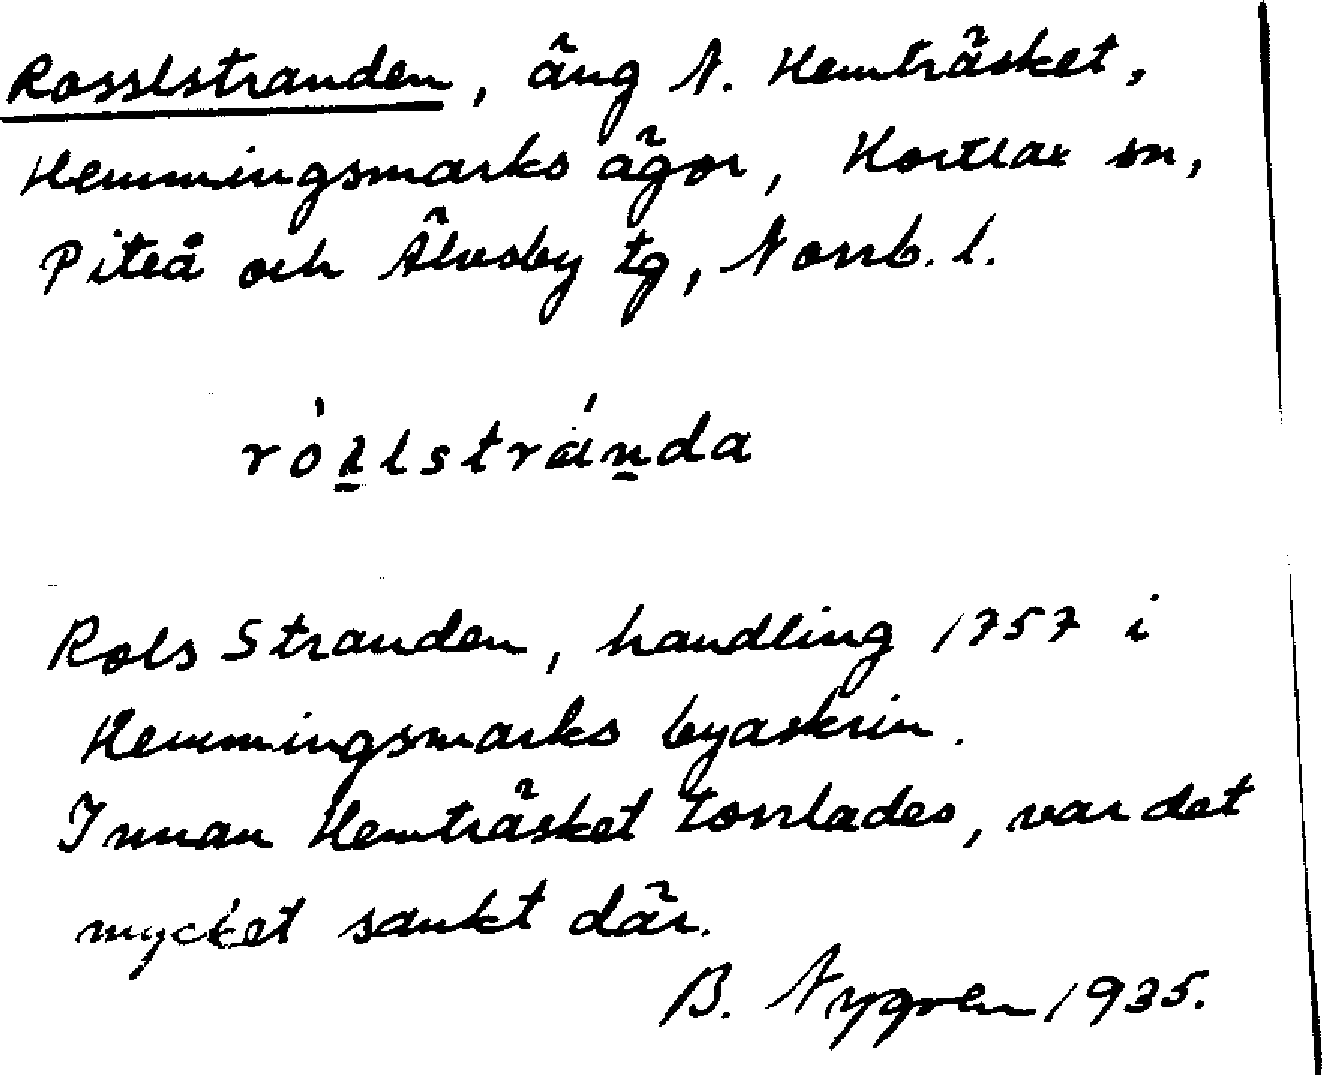 Rosslstranden, äng N. Hemträsket,
Hemmingsmarks ägor, Hortlax sn,
Piteå och Älvsby tg, Norrb. l.
Rols Stranden, handling 1757 i
Hemmingsmarks byaskrin.
Innan Hemträsket torrlades, var det
mycket sankt där.
B. Nygren 1935.